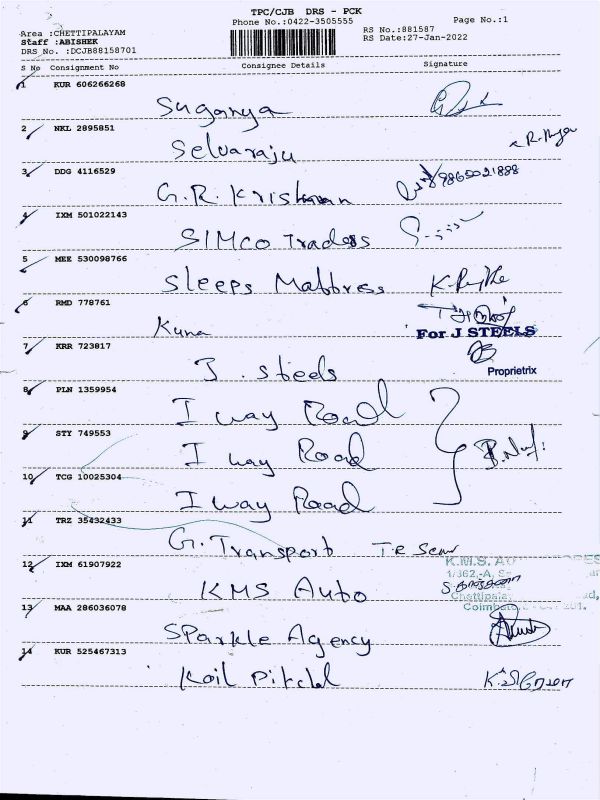 TPC/CJB DRS - PCK
Phone No.:0422-3505555
Page No.:1
Area :CHETTIPALAYAM
Staff :ABISHEK
DRS No. :DCJB88158701
RS No.:881587
RS Date:27-Jan-2022
S No Consignment No Consignee Details Signature
1 KUR 606266268
Suganya
2 NKL 2895851
Selvaraju
3 DDG 4116529
9865021888
G.R. Krishnan
4 IXM 501022143
SIMCO Traders
5 MEE 530098766
Sleeps Mattress
6 RMD 778761
Kuna
For J STEELS
7 KRR 723817
J. Steels
Proprietrix
8 PLN 1359954
I way Road
9 STY 749553
I way Road
10 TCG 10025304
I way Road
11 TRZ 35432433
G. Transport
12 IXM 61907922
K.M.S. AU
1/362,-A, S
Chettipala
KMS Auto
Coimbato
13 MAA 286036078
Sparkle Agency
14 KUR 525467313
Koil